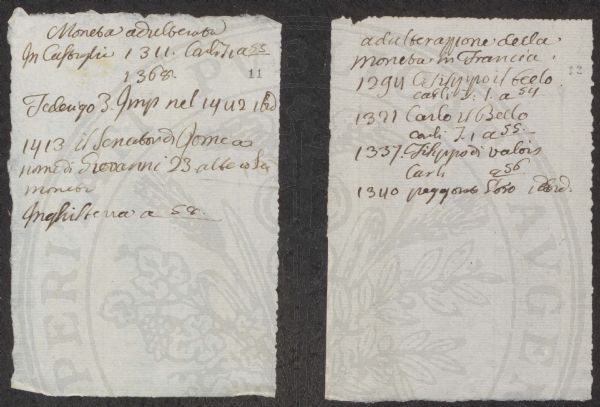 Moneta adulterata
In Castiglia 1311. Carli T. 1 a 55
1368.
11
Federigo 3. Imp nel 1442 ibid
1413 il Senator di Roma a
nome di Giovanni 23 alterò la
moneta
Inghilterra a 58.
adulterazzione della
moneta in Francia.
12
1294 Filippo il bello.
carli T. 1. a 54
1321 Carlo il Bello
carli T. 1 a 55.
1337. Filippo di Valois
Carli a 56
1340 ibid.
PERI
AVGE